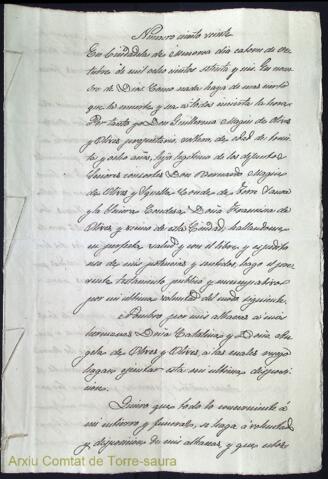 Número ciento veinte
En Ciudadela de Menorca dia catorce de Oc-
tubre de mil ocho cientos setenta y seis. En nom-
bre de Dios. Como nada haya de mas cierto
que la muerte y sea a todos incierta la hora
Por tanto yo Don Guillermo Magin de Olves
y Olves propietario, soltero de edad de trein-
ta y ocho años, hijo legitimo de los difuntos
Señores consortes Don Bernardo Magin
de Olves y Conde de Torre Saura
y la Señora Condesa Doña Francisca de
Olves y vecino de esta Ciudad, hallandome
en perfecta salud y con el libre y espedito
uso de mis potencias y sentidos, hago el pre-
sente testamento publico y nuncupativo
por mi ultima voluntad del modo siguiente.
Nombro por mis albaceas a mis
hermanas Doña Catalina y Doña An-
gela de Olves y Olves, a las cuales
hagan ejecutar esta mi ultima disposi-
cion.
Quiero que todo lo concerniente á
mi entierro y funeral, se haga á voluntad
y disposicion de mis albaceas, y que
Arxiu Comtat de Torre-saura